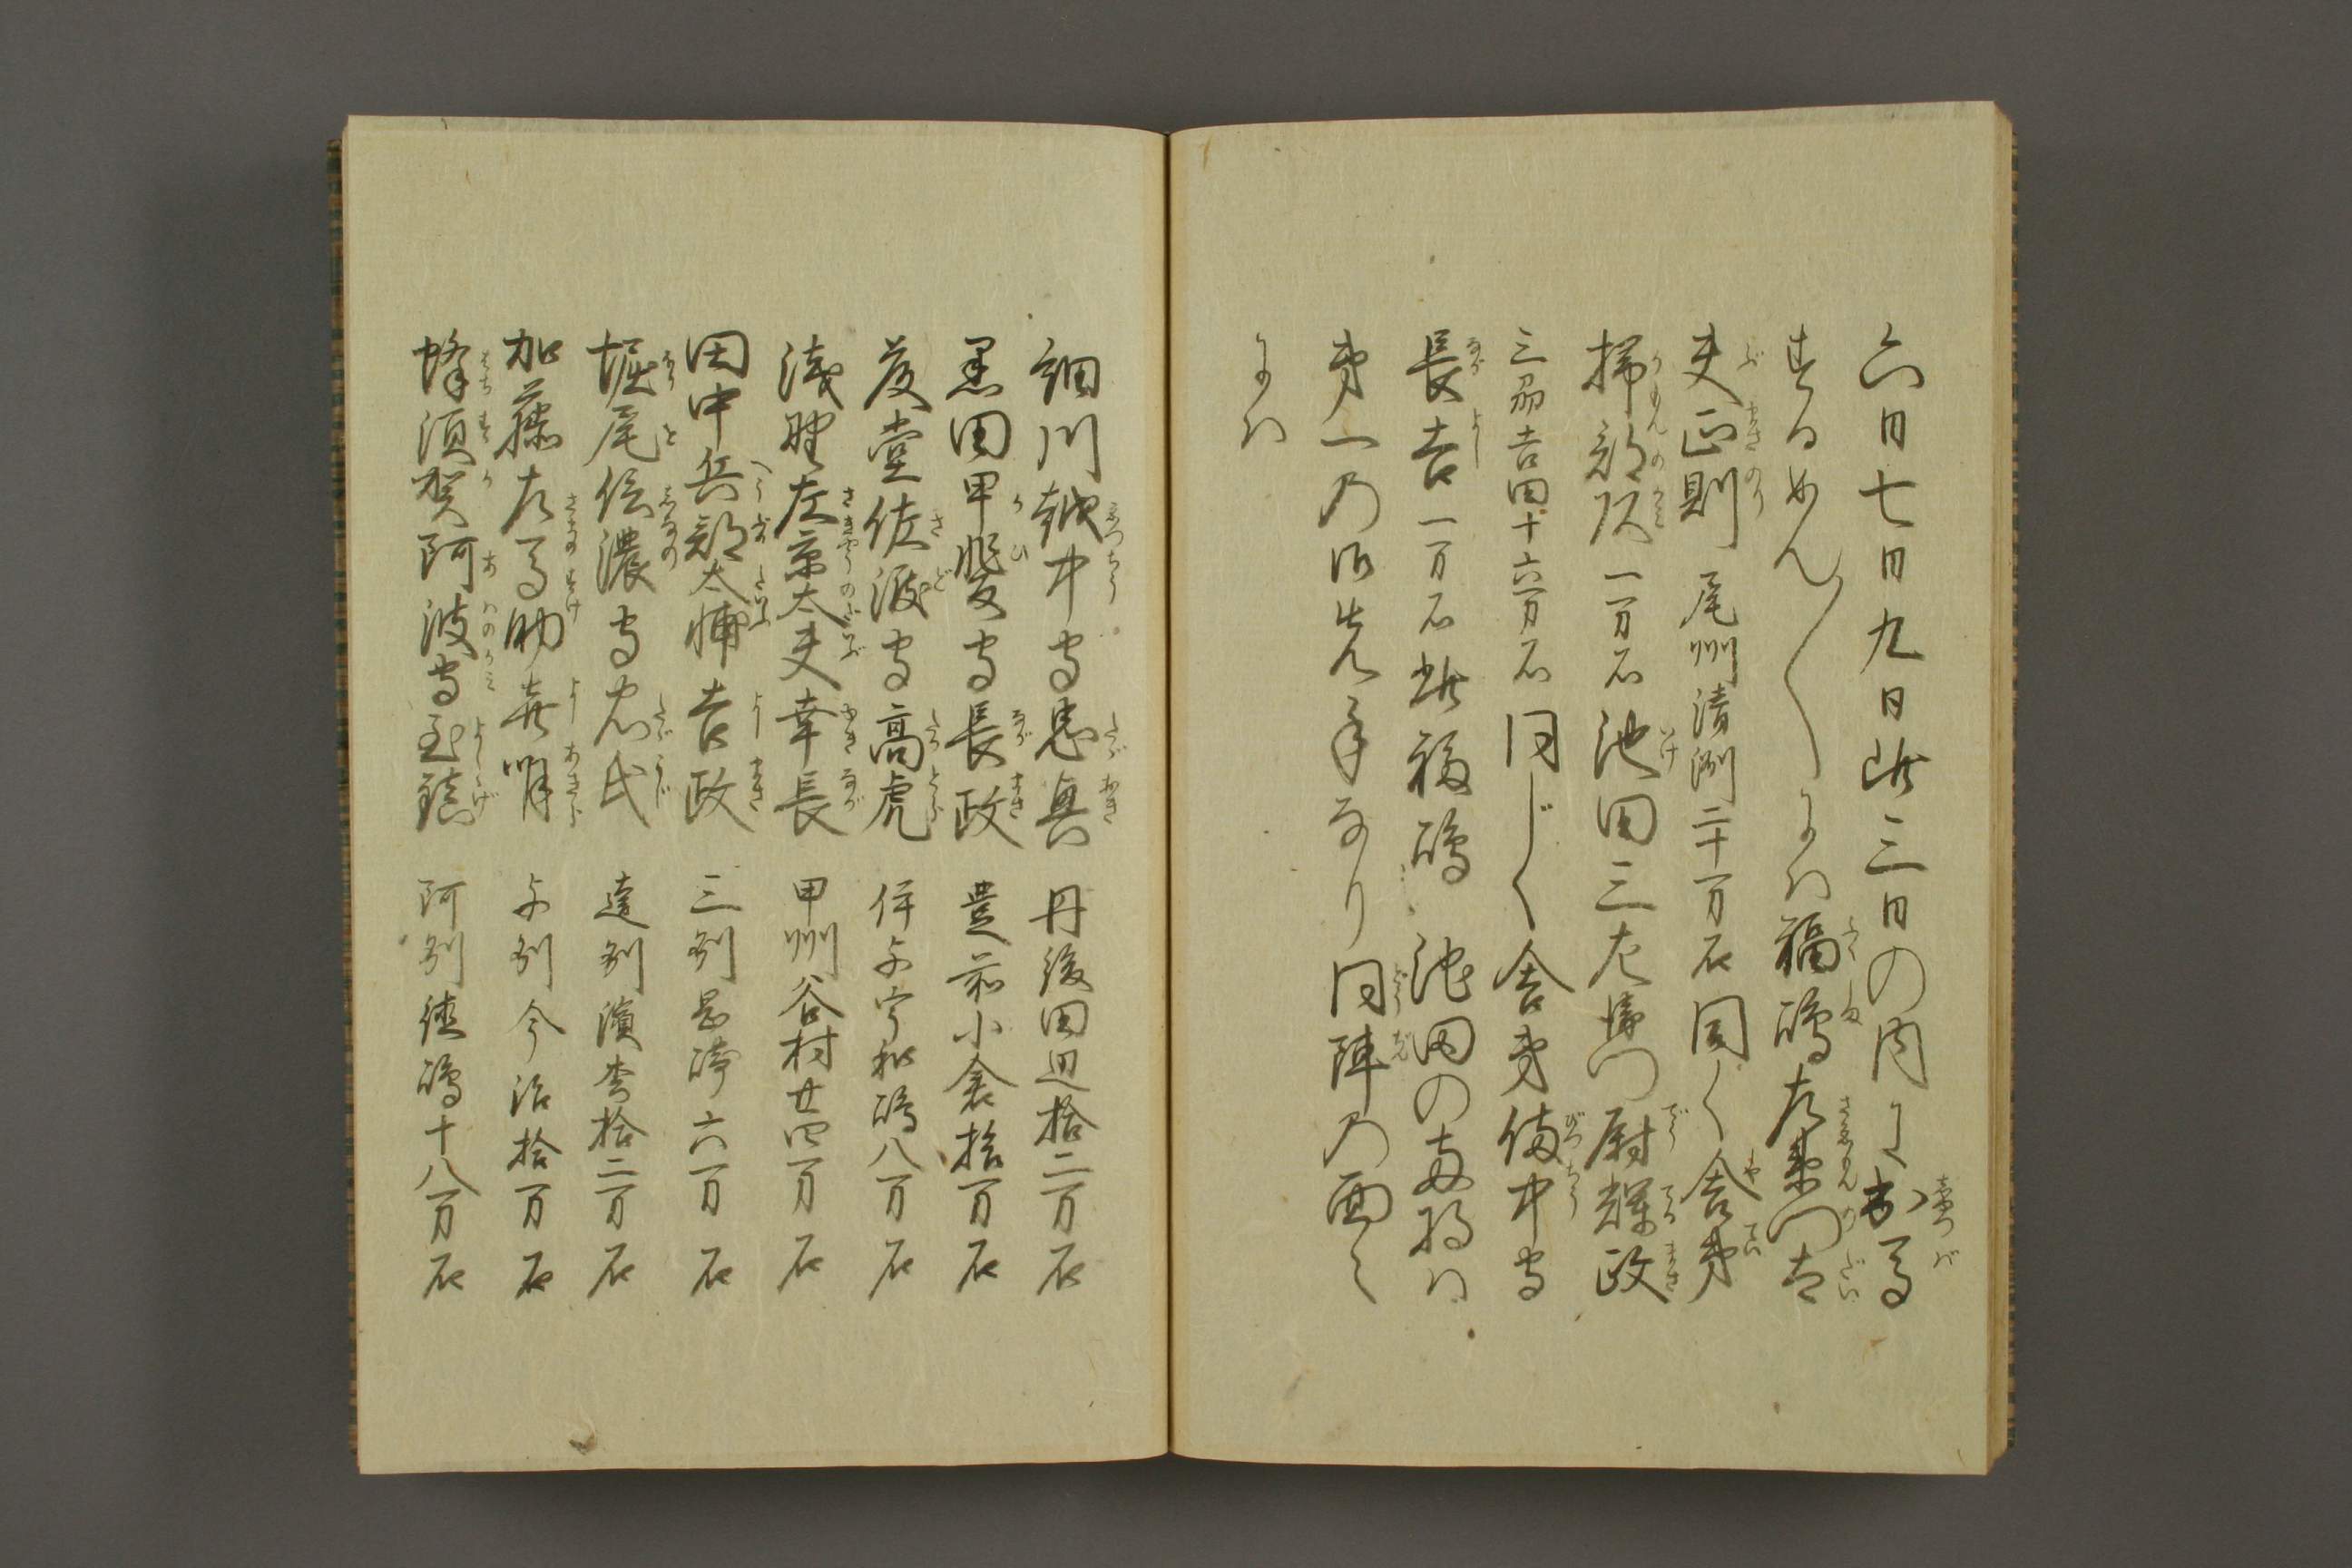 六日七日九日此三日の内に出馬
するめん〳〵には福嶋左衛門太
夫正則尾州清洲二十万石同く舎弟
掃部頭一万石池田三左衛門尉輝政
三州吉田十六万石同じく舎弟備中守
長吉一万石此福嶋池田の両将は
第一の御先手なり同陣の面々
には
細川越中守忠興 丹後田辺拾二万石
黒田甲斐守長政 豊前小倉拾万石
藤堂佐渡守高虎 伊与宇和嶋八万石
浅野左京太夫幸長 甲州谷村廿四万石
田中兵部太輔吉政 三州岡崎六万石
堀尾信濃守忠氏 遠州濱松拾二万石
加藤左馬助嘉明 与州今治拾万石
蜂須賀阿波守至鎮 阿州徳嶋十八万石